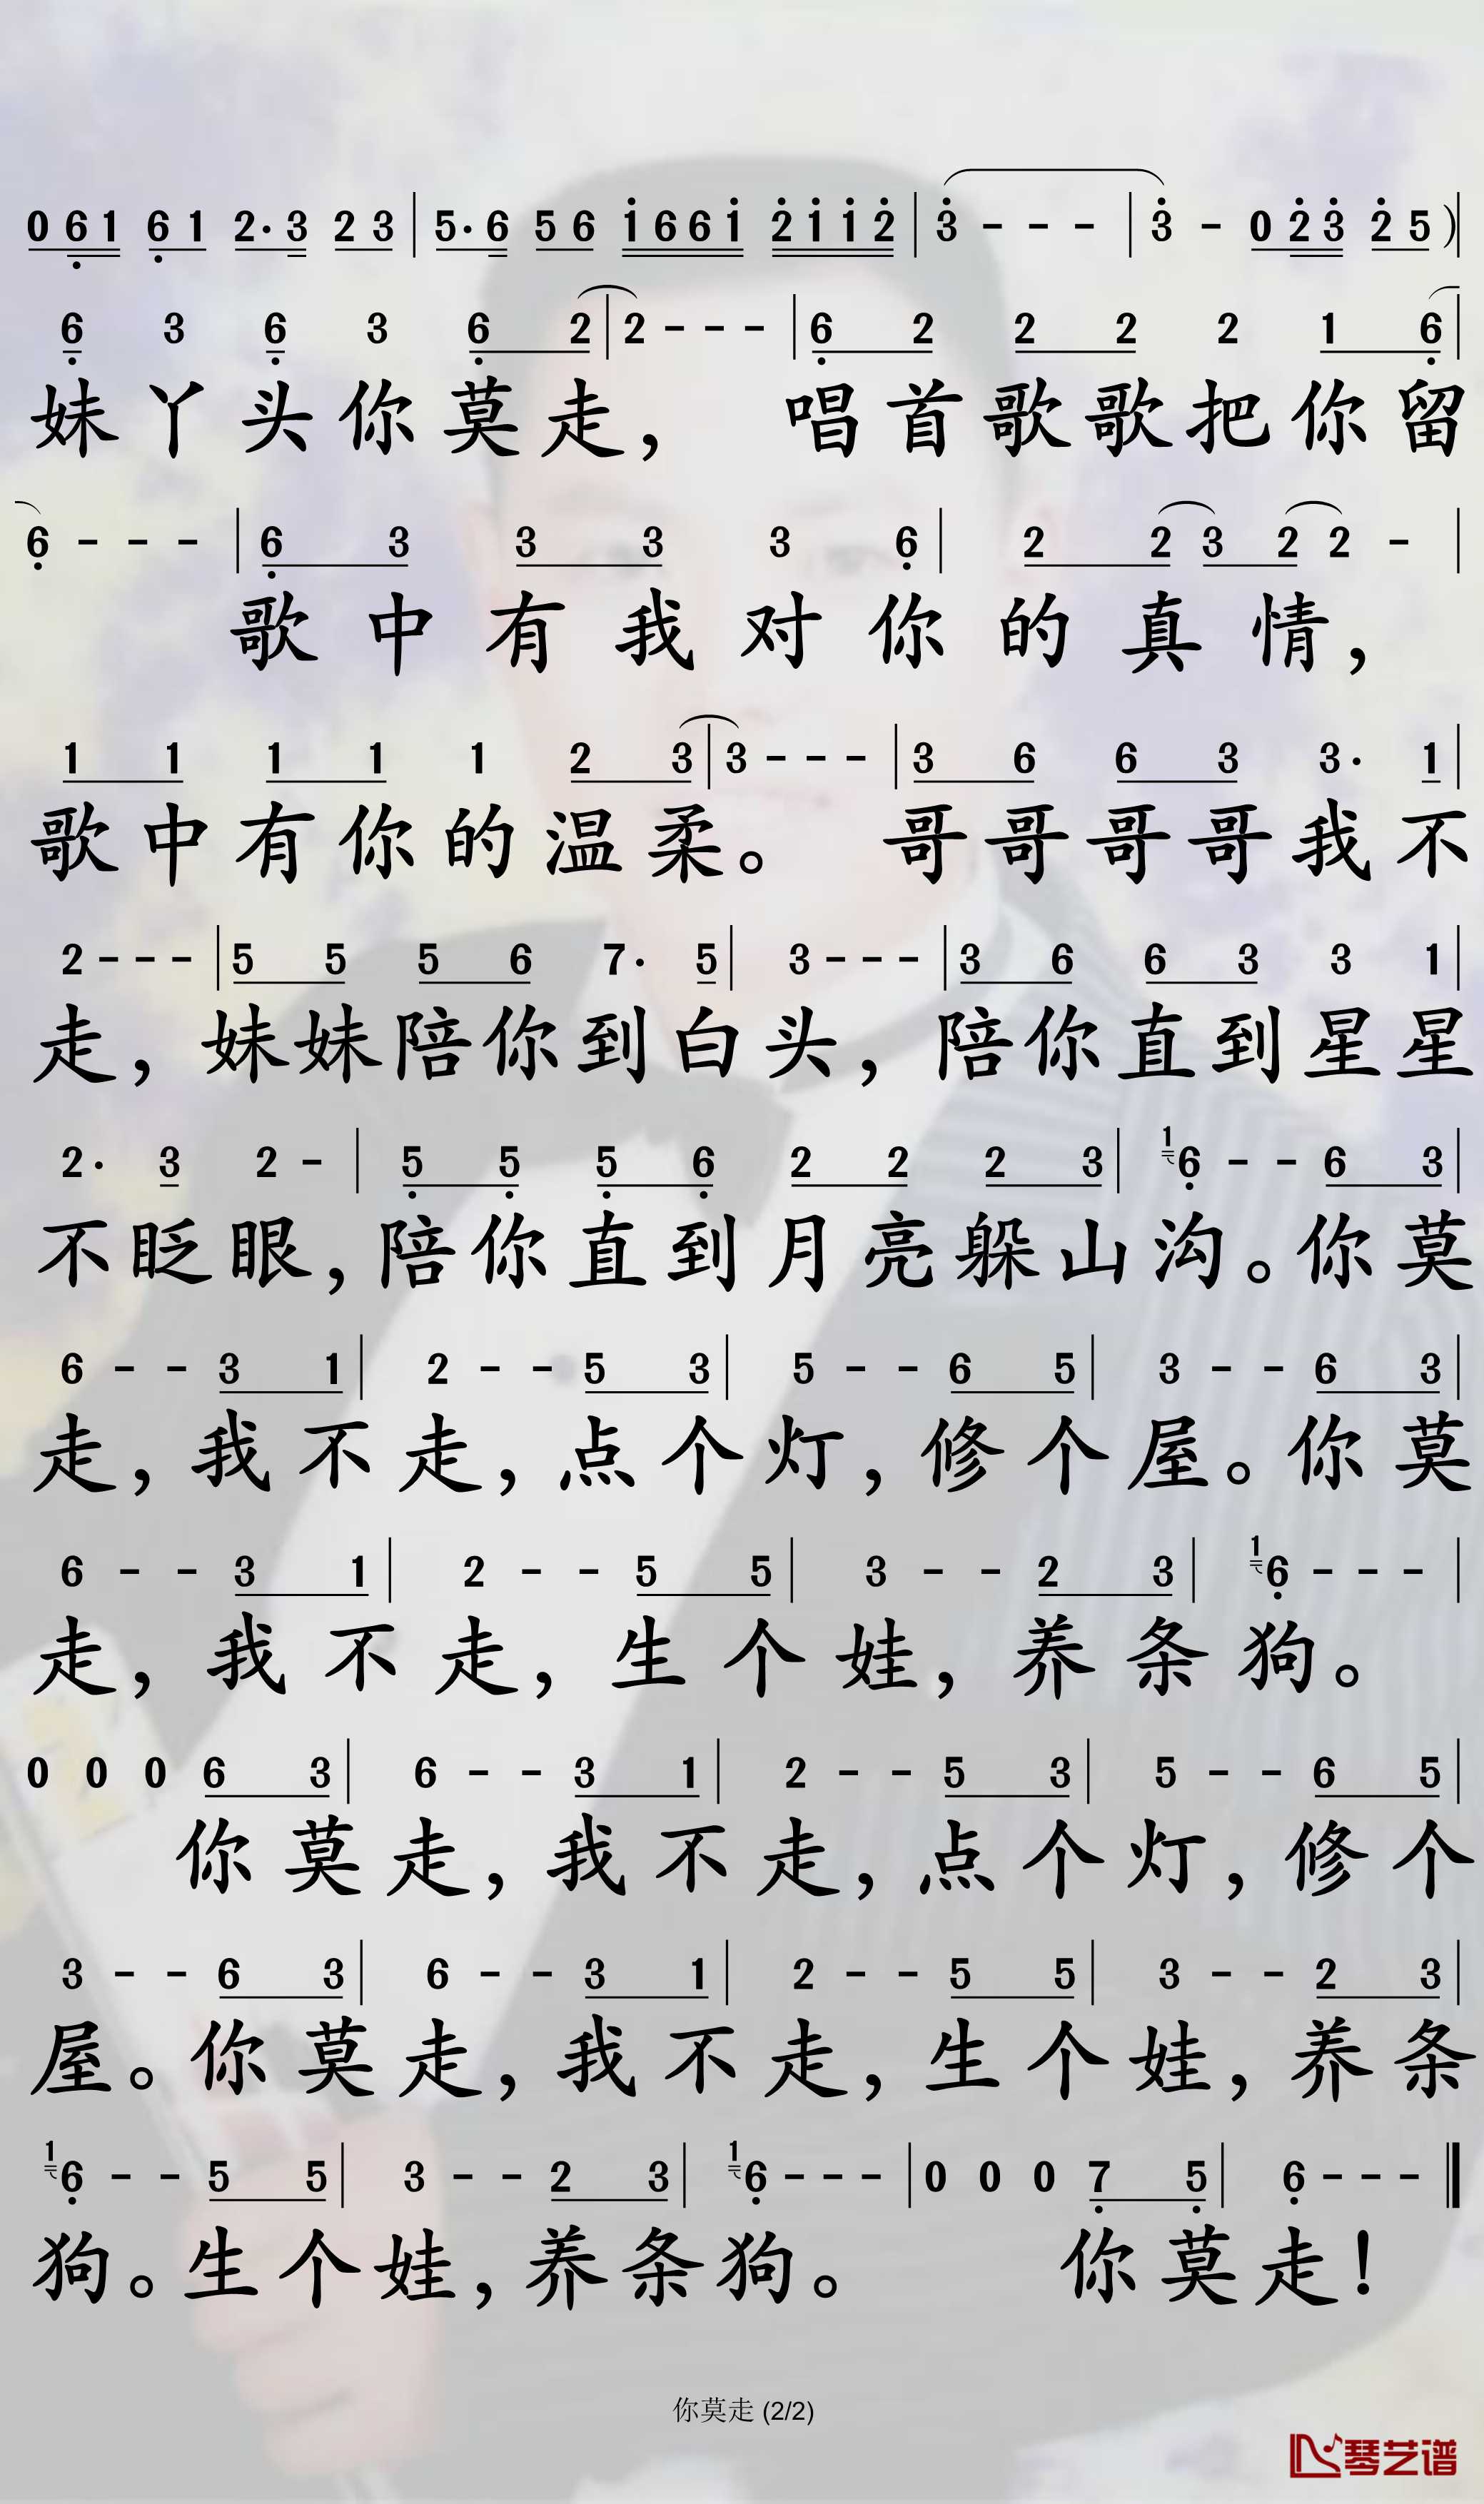 0 6 1 6 1 2· 3 2 3 | 5· 6 5 6 1 6 6 1 2 1 1 2 | 3 - - - | 3 - 0 2 3 2 5 ) |
6 3 6 3 6 2 | 2 - - - | 6 2 2 2 2 1 6 |
妹丫头你莫走， 唱首歌歌把你留
6 - - - | 6 3 3 3 3 6 | 2 2 3 2 2 - |
歌中有我对你的真情，
1 1 1 1 1 2 3 | 3 - - - | 3 6 6 3 3· 1 |
歌中有你的温柔。 哥哥哥哥我不
2 - - - | 5 5 5 6 7· 5 | 3 - - - | 3 6 6 3 3 1 |
走，妹妹陪你到白头，陪你直到星星
2· 3 2 - | 5 5 5 6 2 2 2 3 | 1 6 - - 6 3 |
不眨眼，陪你直到月亮躲山沟。你莫
6 - - 3 1 | 2 - - 5 3 | 5 - - 6 5 | 3 - - 6 3 |
走，我不走，点个灯，修个屋。你莫
6 - - 3 1 | 2 - - 5 5 | 3 - - 2 3 | 1 6 - - - |
走，我不走，生个娃，养条狗。
0 0 0 6 3 | 6 - - 3 1 | 2 - - 5 3 | 5 - - 6 5 |
你莫走，我不走，点个灯，修个
3 - - 6 3 | 6 - - 3 1 | 2 - - 5 5 | 3 - - 2 3 |
屋。你莫走，我不走，生个娃，养条
1 6 - - 5 5 | 3 - - 2 3 | 1 6 - - - | 0 0 0 7 5 | 6 - - - ‖
狗。生个娃，养条狗。 你莫走！
你莫走 (2/2)
琴艺谱